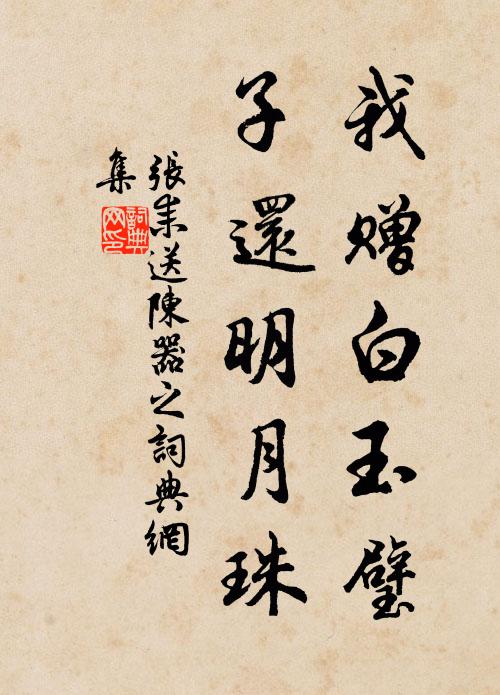 我贈白玉璧
子還明月珠
張耒送陳器之詞典網
集
詞典
网印